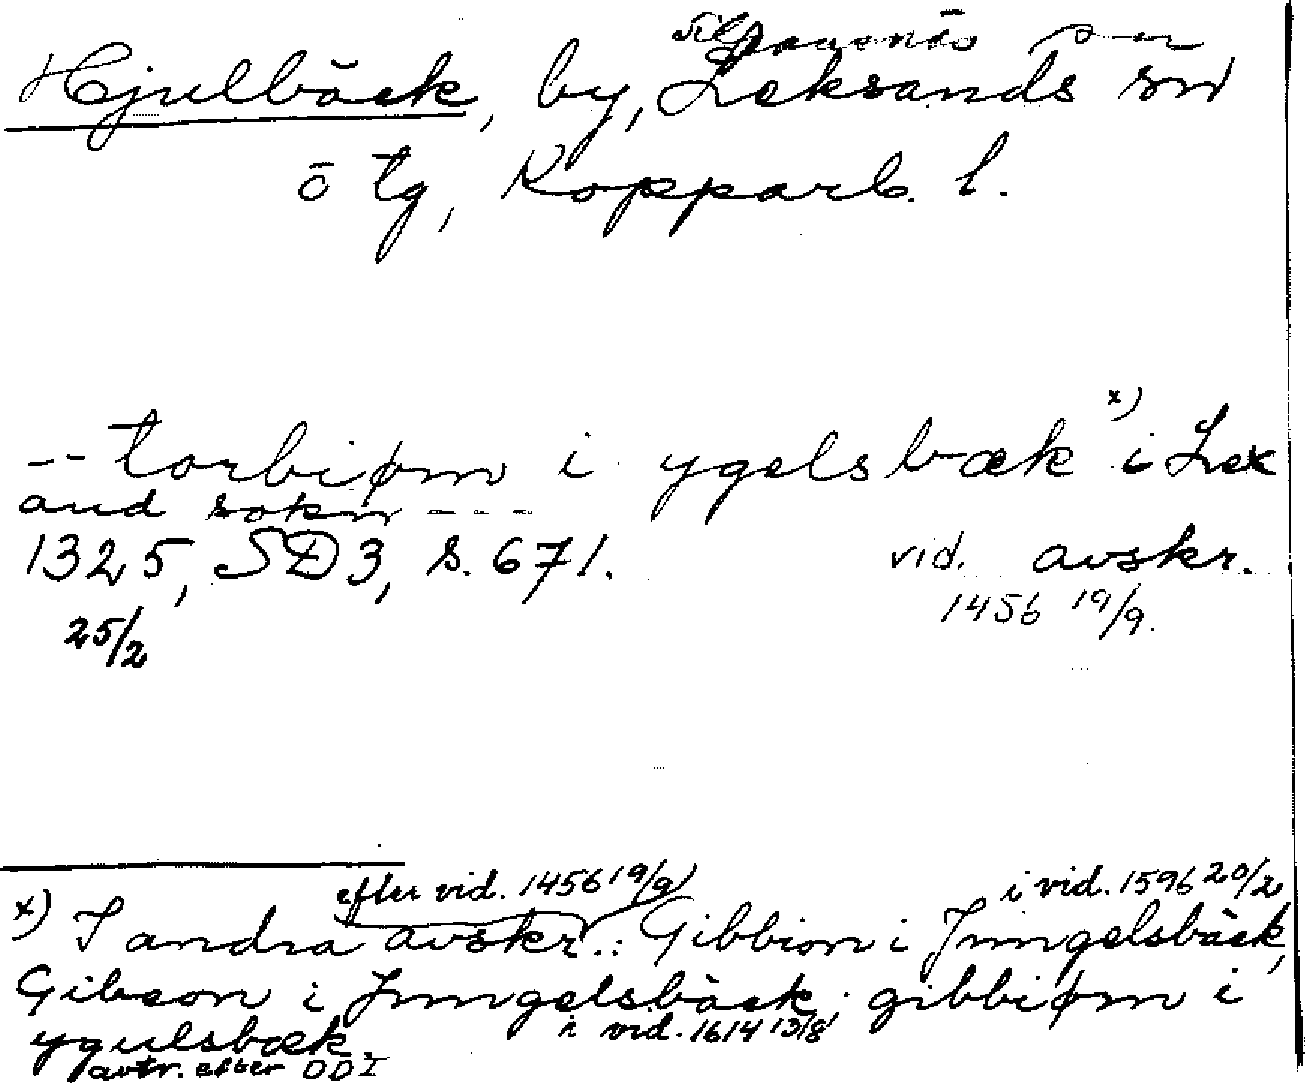 till Djurmo
Hjulbäck, by, Leksands sn
ö tg, Kopparb. l.
-- torbiørn i ygelsbæk x) i Lex
and sokn ---
1325, SD3, s. 671. vid. avskr.
25/2 1456 19/9.
efter vid. 1456 19/9 i vid. 1596 20/2
x) I andra avskr.: Gibbion i Jnngelsbäck,
Gibson i Jnngelsbäck. gibbiørn i
i vid. 1614 13/8
ygulsbæk.
avtr. efter DDI